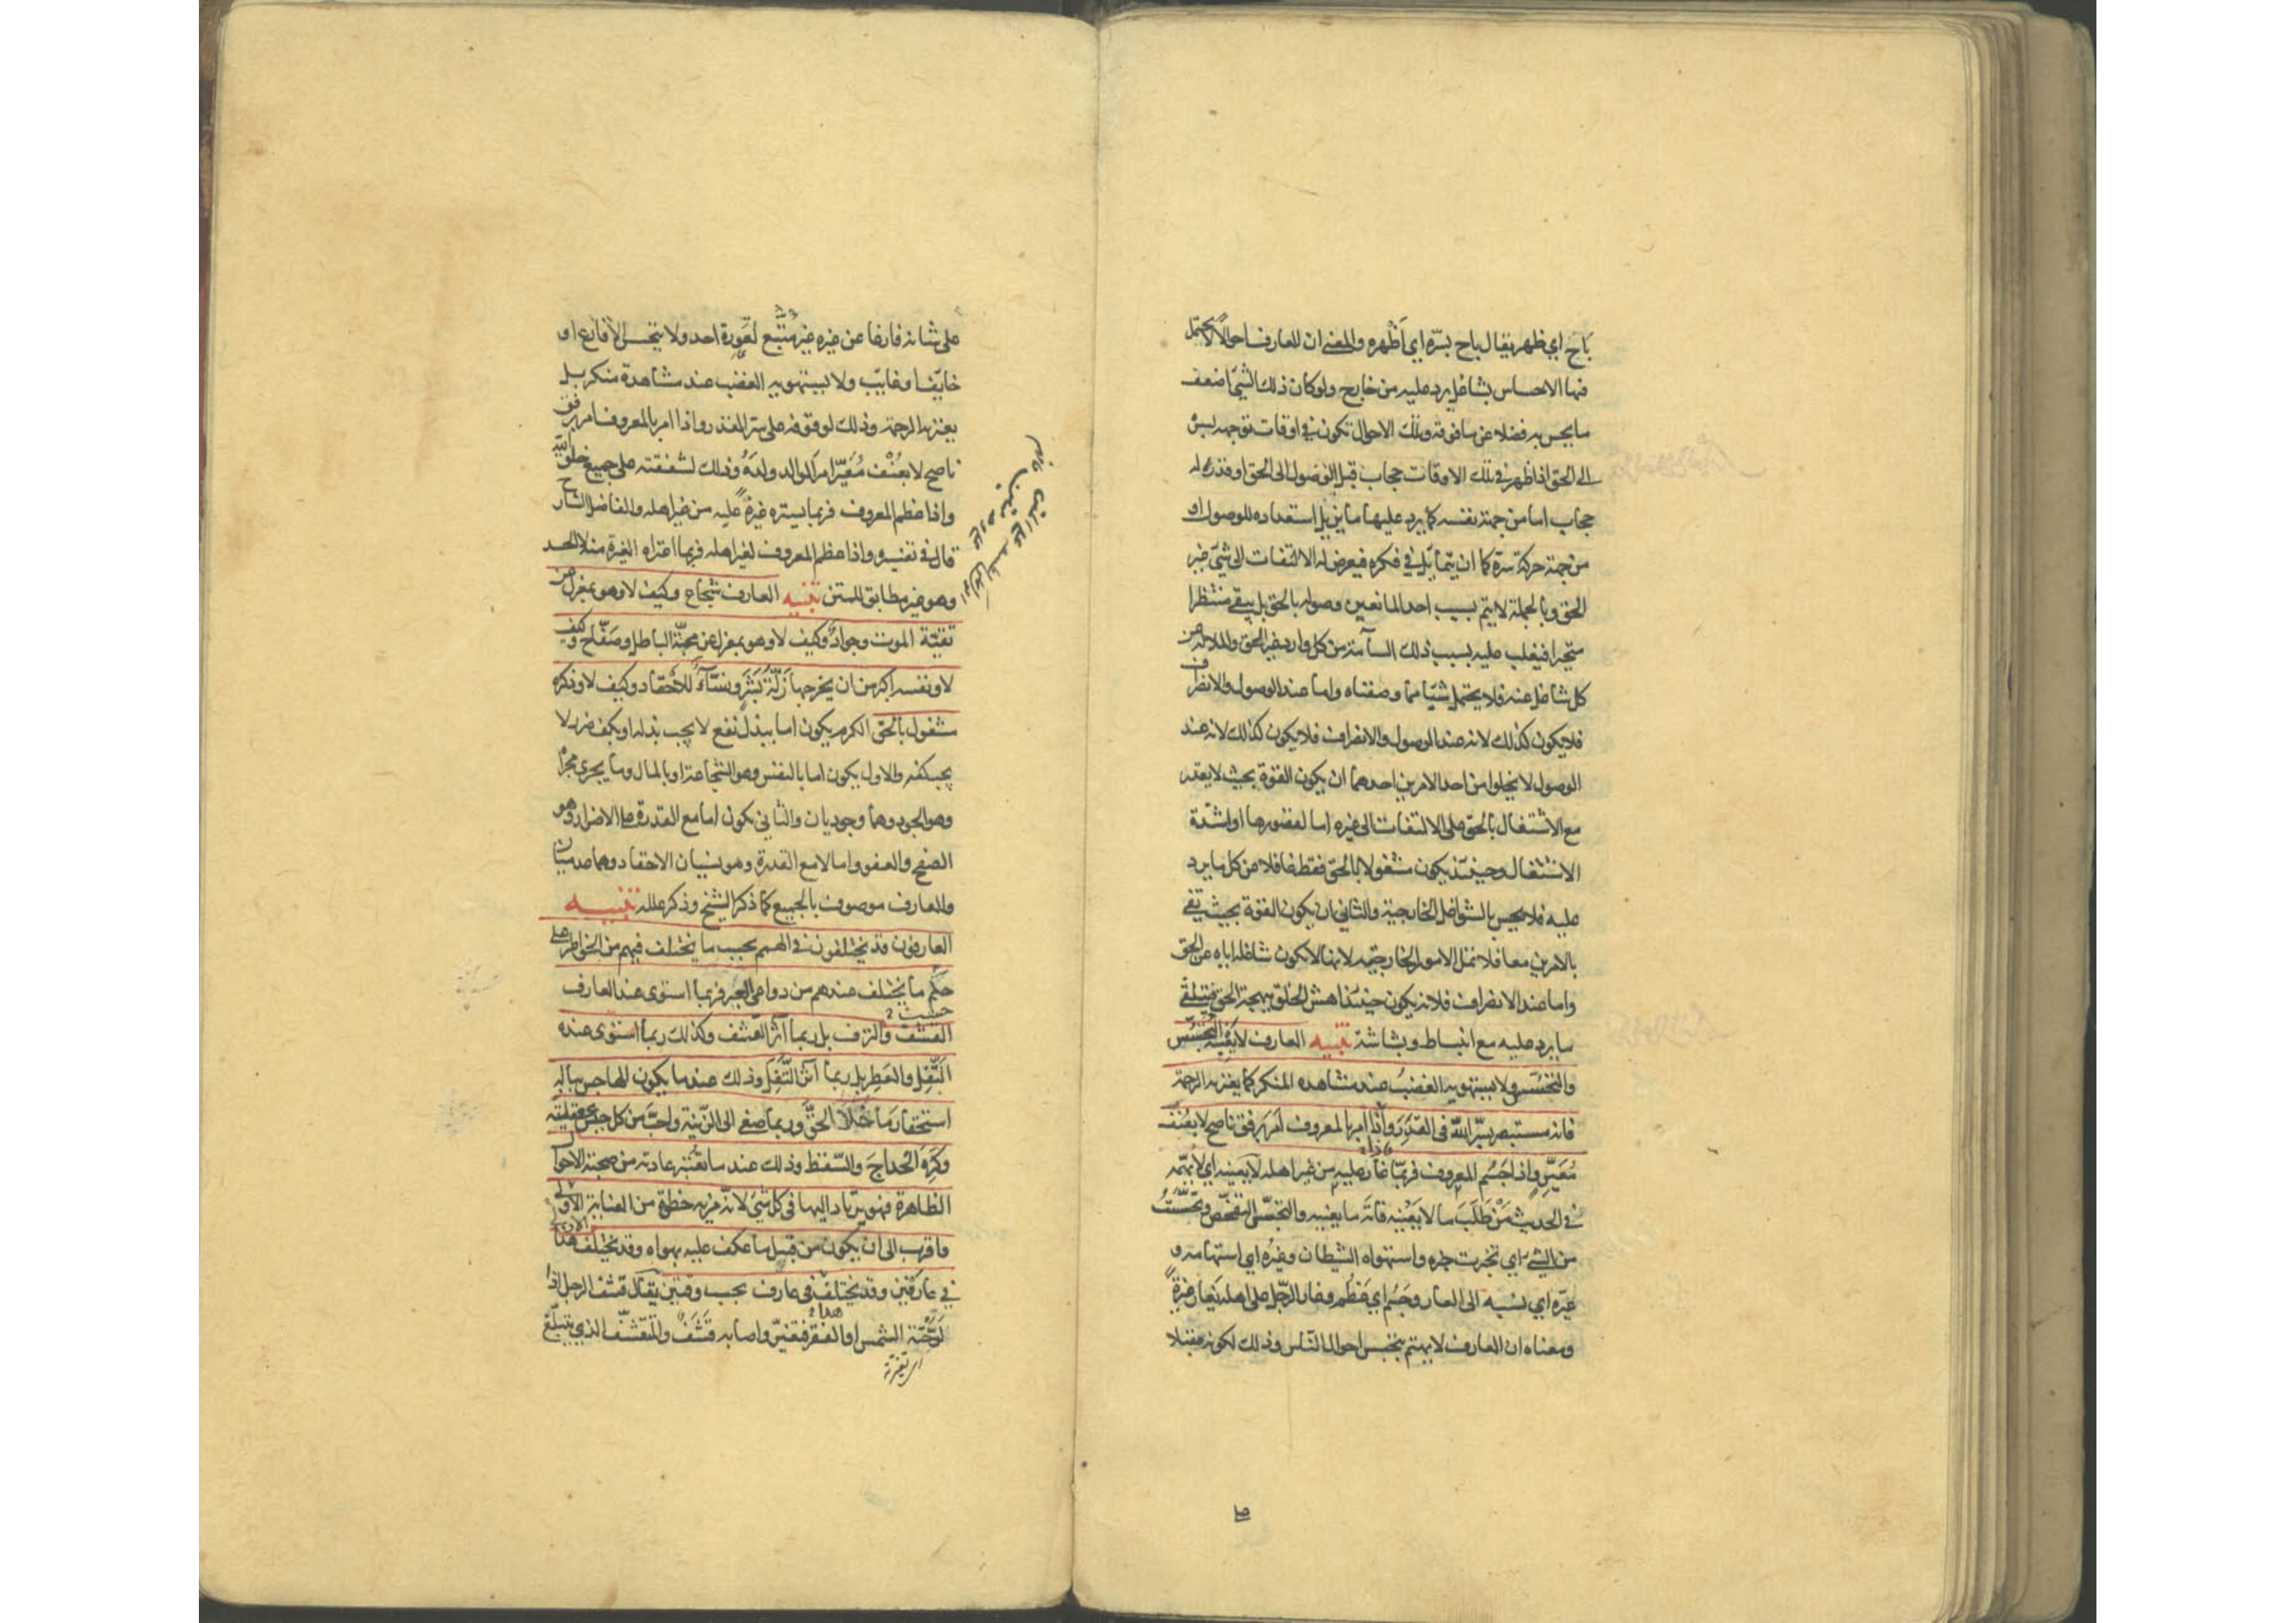 باح اي ظهر يقال باح بسره اي أظهره والمعنى ان للعارف احوالا لا يحتمل
فيها الاحساس بشاغل يرد عليه من خارج ولو كان ذلك الشئ اضعف
ما يحس به فضلا عن ما فوقه وتلك الاحوال تكون في اوقات توجهه بسره
الى الحق اذا ظهر في تلك الاوقات حجاب قبل الوصول الى الحق او قدر له
حجاب اما من جهة نفسه كما يرد عليها ما يزيل استعداده للوصول او
من جهة حركة سره كما ان يتمايل في فكره فيعرض له الالتفات الى شئ غير
الحق وبالجملة لا يتم بسبب احد المانعين وصوله بالحق بل يبقى منتظرا
متحيرا فيغلب عليه بسبب ذلك السآمة من كل وارد غير الحق والملالة عن
كل شاغل عنه فلا يحتمل شيئا مما وصفناه واما عند الوصول والانصراف
فلا يكون كذلك لانه عند الوصول والانصراف فلا يكون كذلك لانه عند
الوصول لا يخلوا من احد الامرين احدهما ان يكون القوة بحيث لا يقتدر
مع الاشتغال بالحق على الالتفات الى غيره اما لقصورها او لشدة
الاشتغال وحينئذ يكون مشغولا بالحق فقط غافلا عن كل ما يرد
عليه فلا يحس بالشواغل الخارجية والثاني ان يكون القوة بحيث تفي
بالامرين معا فلا تمل الامور الخارجية لانها لا تكون شاغلة اياه عن الحق
واما عند الانصراف فلانه يكون حينئذ اهش الخلق ببهجة الحق فيتلقى
ما يرد عليه مع انبساط وبشاشة تنبيه العارف لا يعنيه التجسس
والتحسس ولا يستهويه الغضب عند مشاهده المنكر كما يعتريه الرحمة
فانه مستبصر بسر الله في القدر واذا امر بالمعروف امر برفق ناصح لا بعنف
معير واذا جسم المعروف فربما غار عليه من غير اهله لا يعنيه اي لا يهمه
في الحديث من طلب ما لا يعنيه فاته ما يعنيه والتجسس التفحص وتحسست
من الشئ اي تخبرت خبره واستهواه الشيطان وغيره اي استهامه و
عيره اي نسبه الى العار وجسم اي عظم وغار الرجل على اهله يغار غيرة
ومعناه ان العارف لا يهتم بتجسس احوال الناس وذلك لكونه مقبلا
على شانه فارغا عن غيره غير متتبع لعورة احد ولا يتجسس الا فارغ او
خايف او غايب ولا يستهويه الغضب عند مشاهدة منكر بل
يعتريه الرحمة وذلك لوقوفه على سر القدر واذا امر بالمعروف امر برفق
ناصح لا بعنف معير امر الوالد ولده وذلك لشفقته على جميع خلق الله
واذا عظم المعروف فربما يستره غيرة عليه من غير اهله والفاضل الشارح
قال في تفسيره واذا عظم المعروف لغير اهله فربما اعتراه الغيرة منه لا الحسد
وهو غير مطابق للمتن تنبيه العارف شجاع وكيف لا وهو بمعزل عن
تقية الموت وجواد وكيف لا وهو بمعزل عن محبة الباطل وصفاح وكيف
لا ونفسه اكبر من ان يخرجها زلة بشر ونساء للاحقاد وكيف لا وذكره
مشغول بالحق الكرم يكون اما ببذل نفع لا يجب بذله او بكف ضرر لا
يجب كفه والاول يكون اما بالنفس وهو الشجاعة او بالمال وما يجري مجراه
وهو الجود وهما وجوديان والثاني يكون اما مع القدرة على الاضرار وهو
الصفح والعفو واما لا مع القدرة وهو نسيان الاحقاد وهما عدميان
والعارف موصوف بالجميع كما ذكر الشيخ وذكر علله تنبيه
العارفون قد يختلفون في الهمم بحسب ما يختلف فيهم من الخواطر على
حكم ما يختلف عندهم من دواعي العبر فربما استوى عند العارف
القشف والترف بل ربما آثر القشف وكذلك ربما استوى عنده
التفل والعطر بل ربما آثر التفل وذلك عندما يكون الهاجس بباله
استحقار ما خلا الحق وربما صغى الى الزينة واحب من كل جنس عقيلته
وكره الخداج والسقط وذلك عند ما يعتبر عادته من صحبة الاحوال
الظاهرة فهو يرتاد اليها في كل شئ لانه مزية خطوة من العناية الاولى
واقرب الى ان يكون من قبيل ما عكف عليه بهواه وقد يختلف هذا
في عارفين وقد يختلف في عارف بحسب وقتين يقال قشف الرجل اذا
لوحته الشمس او الفقر فتغير واصابه قشف والمتقشف الذي يتبلغ